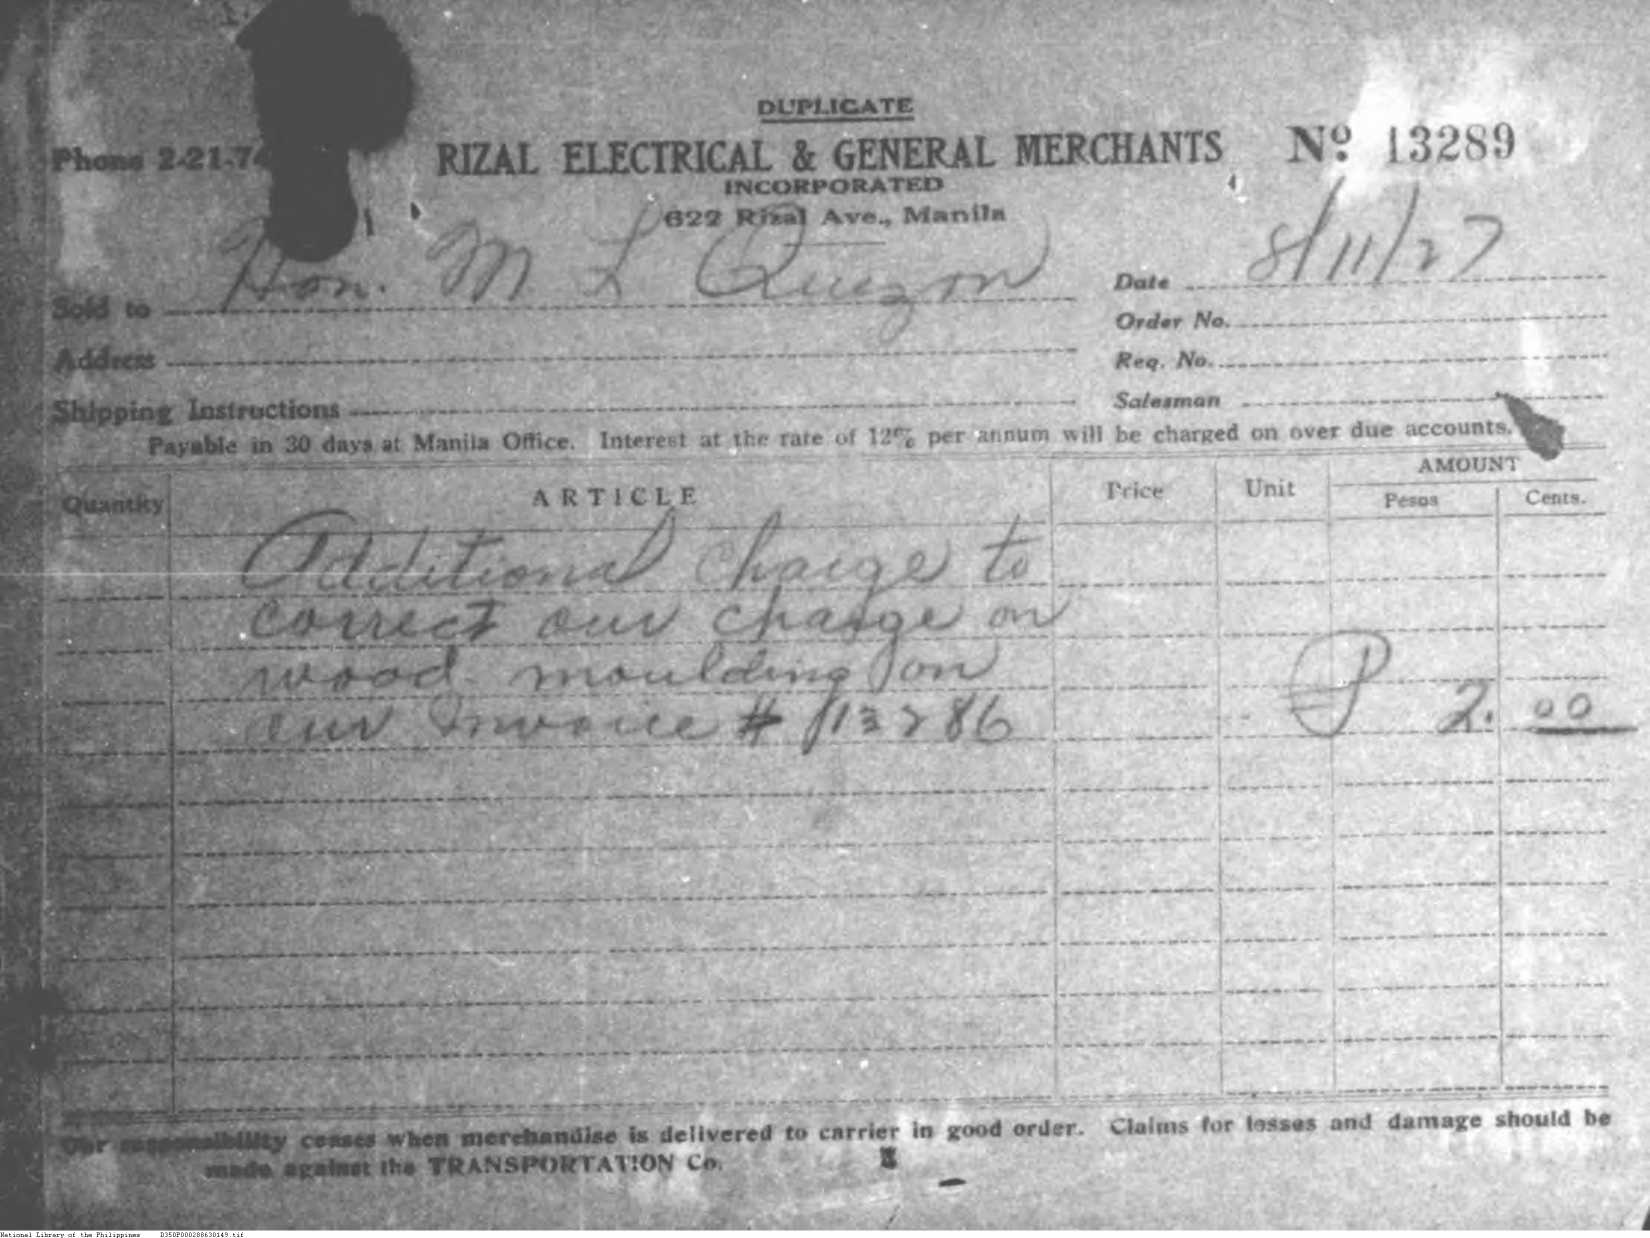 DUPLICATE
Phone 2-21-74
RIZAL ELECTRICAL & GENERAL MERCHANTS
Nº 13289
INCORPORATED
622 Rizal Ave., Manila
Sold to Hon. M L Quezon
Date 8/11/27
Order No.
Address
Req. No.
Shipping Instructions
Salesman
Payable in 30 days at Manila Office. Interest at the rate of 12% per annum will be charged on over due accounts.
Quantity ARTICLE Price Unit AMOUNT
Pesos Cents.
Additional charge to
correct our charge on
wood moulding on
our Invoice # 13286 ₱ 2.00
Our responsibility ceases when merchandise is delivered to carrier in good order. Claims for losses and damage should be
made against the TRANSPORTATION Co.
National Library of the Philippines D350P000288630149.tif